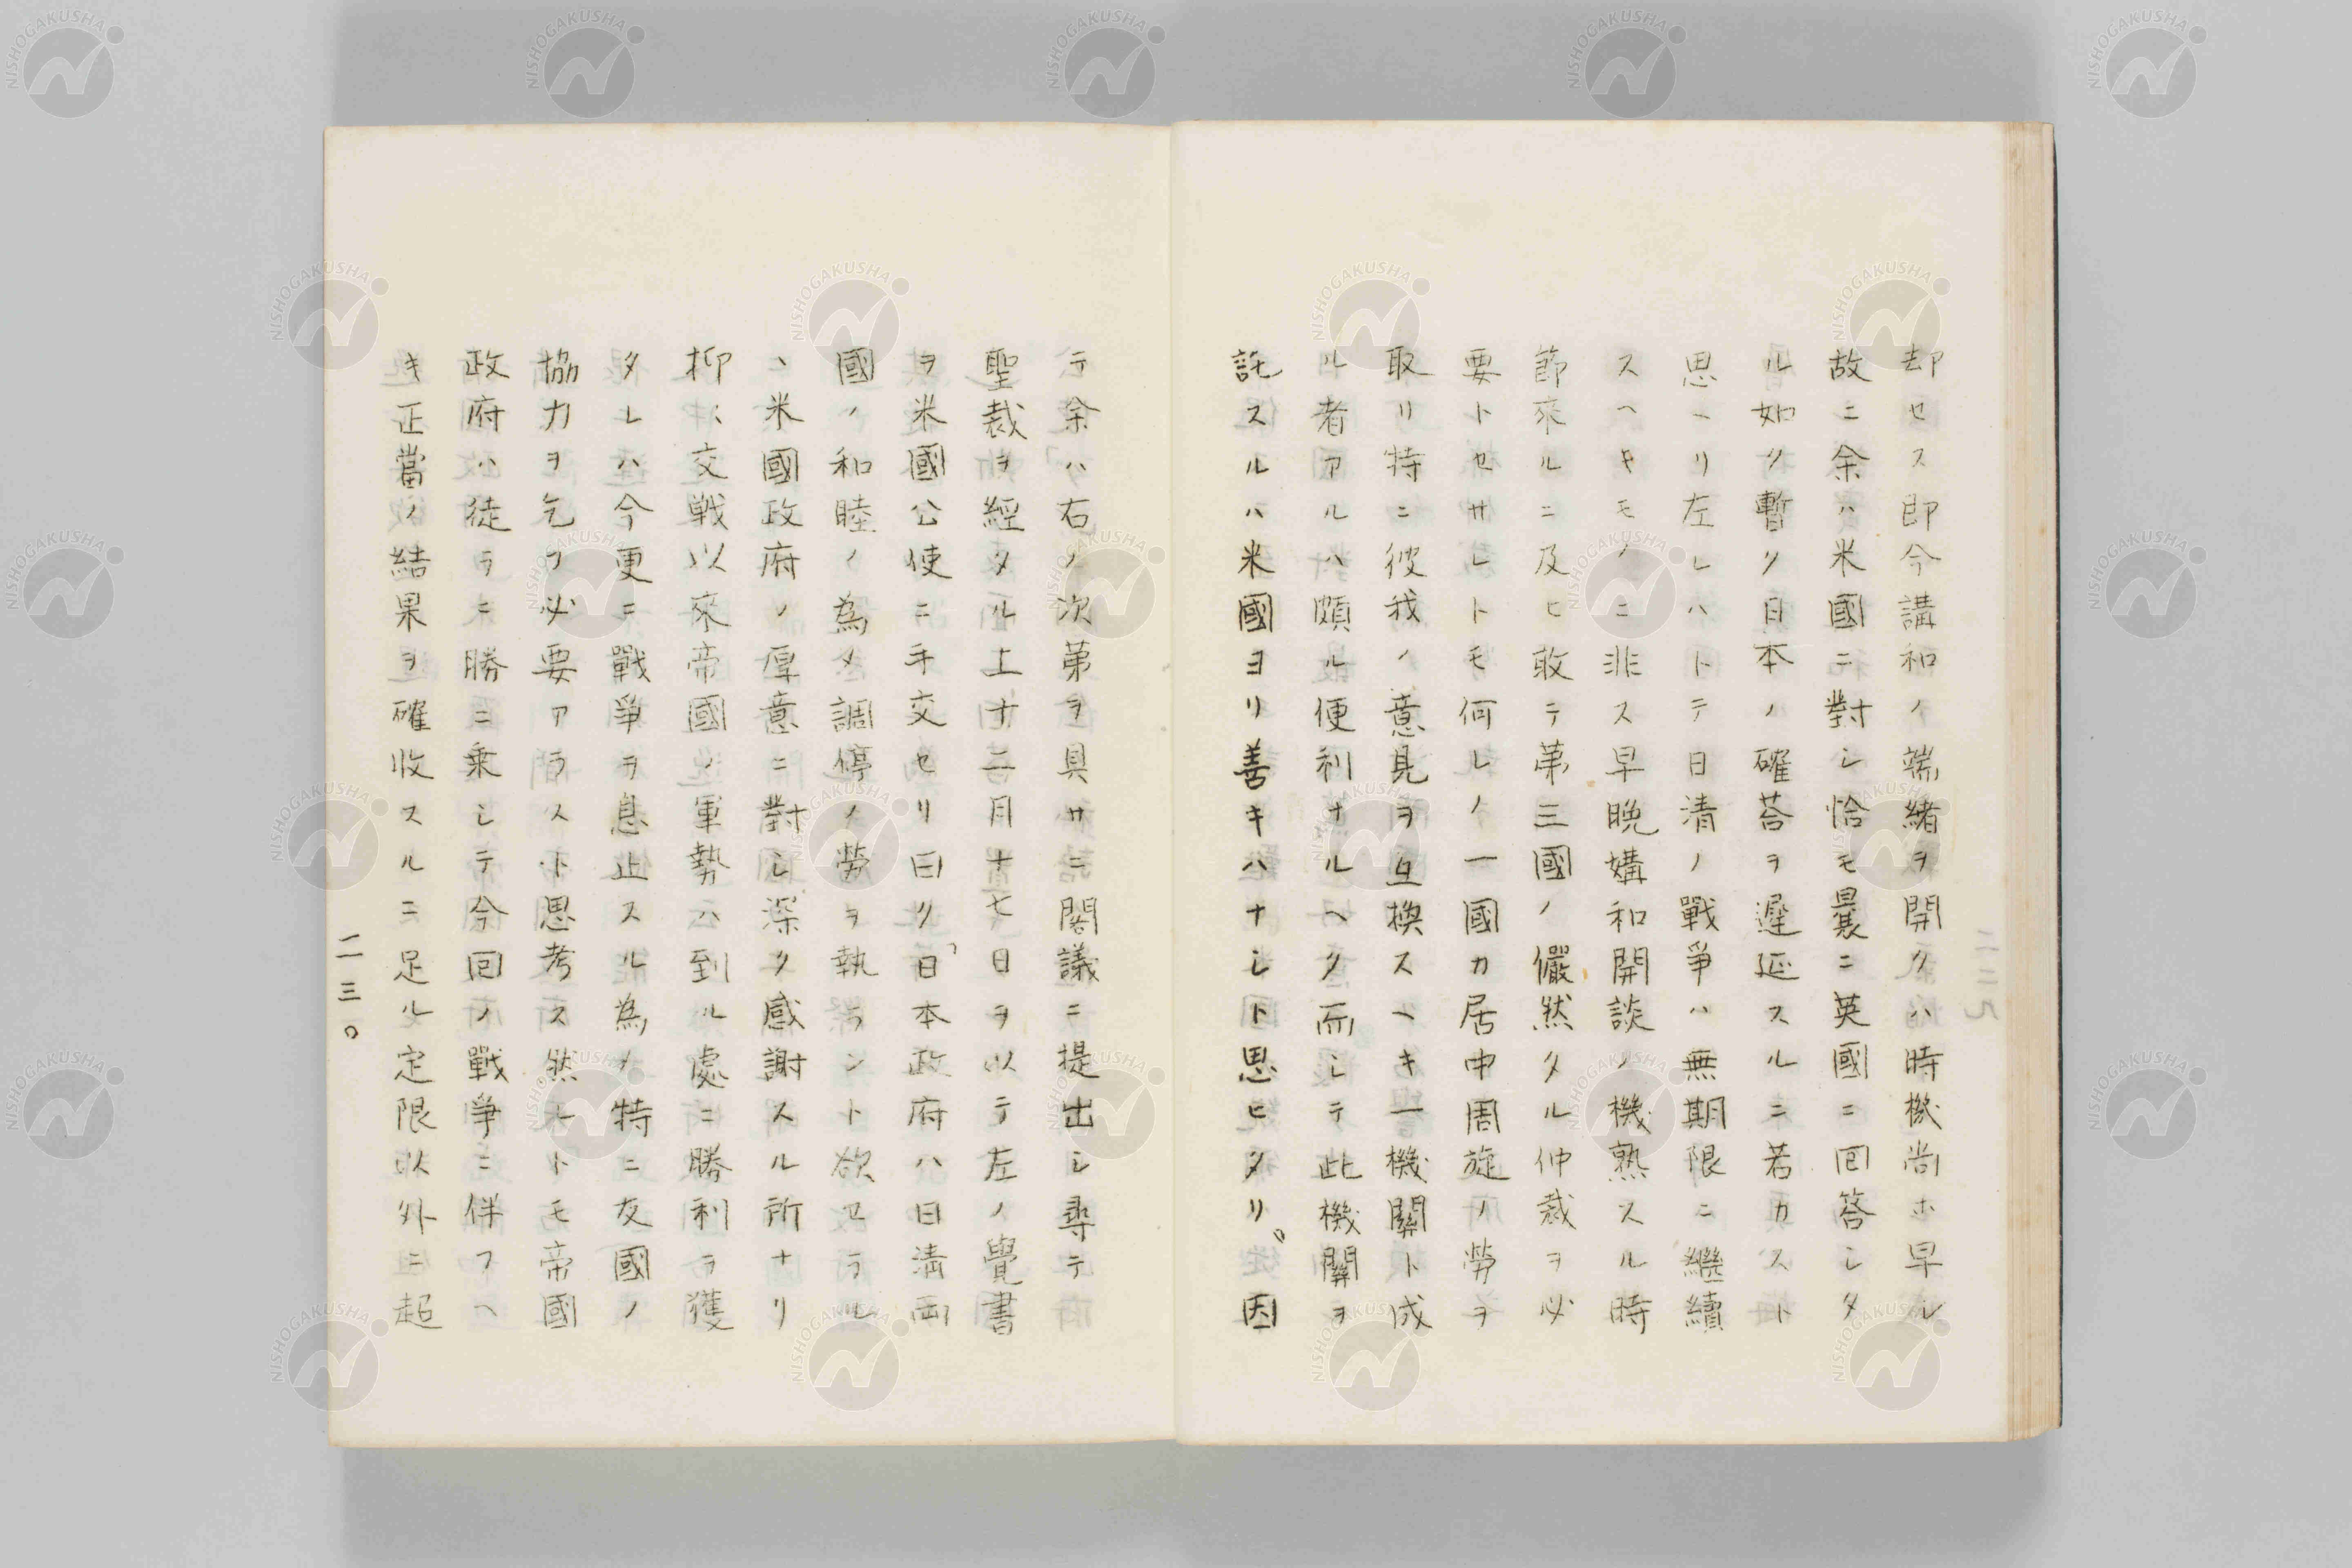 却セス即今講和ノ端緒ヲ開クハ時機尚ホ早シ
故ニ余ハ米國ニ對シ恰モ曩ニ英國ニ回答シタ
ル如ク暫ク日本ノ確荅ヲ遲延スルニ若カスト
思ヘリ左レハトテ日清ノ戰爭ハ無期限ニ繼續
スヘキモノニ非ス早晩媾和開談ノ機熟スル時
節來ルニ及ヒ敢テ第三國ノ儼然タル仲裁ヲ必
要トセサレトモ何レノ一國カ居中周旋ノ勞ヲ
取リ特ニ彼我ノ意見ヲ互換スヘキ一機關ト成
ル者アルハ頗ル便利ナルヘク而シテ此機關ヲ
託スルハ米國ヨリ善キハナシト思ヒタリ。因
テ余ハ右ノ次第ヲ具サニ閣議ニ提出シ尋テ
聖裁ヲ經タル上十一月十七日ヲ以テ左ノ覺書
ヲ米國公使ニ手交セリ曰ク「日本政府ハ日清両
國ノ和睦ノ為メ調停ノ勞ヲ執ラント欲セラル
ヽ米國政府ノ厚意ニ對シ深ク感謝スル所ナリ
抑〻交戦以來帝國ノ軍勢ハ到ル處ニ勝利ヲ獲
タレハ今更ニ戰爭ヲ息止スル為ノ特ニ友國ノ
協力ヲ乞フ必要アラスト思考ス然レトモ帝國
政府ハ徒ラニ勝ニ乗シテ今回ノ戰爭ニ伴フヘ
キ正當ノ結果ヲ確收スルニ足ル定限以外ニ超
二三〇
NISHOGAKUSHA